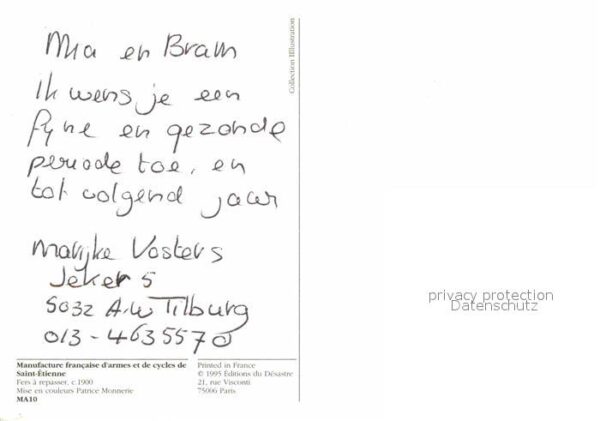 Mia en Bram
Ik wens je een
fyne en gezonde
periode toe, en
tot volgend jaar
Marijke Vosters
Jeker 5
5032 AW Tilburg
013-4635570
Manufacture française d'armes et de cycles de
Saint-Étienne
Fers à repasser, c.1900
Mise en couleurs Patrice Monnerie
MA10
Printed in France
© 1995 Éditions du Désastre
21, rue Visconti
75006 Paris
Collection IIllustration
privacy protection
Datenschutz